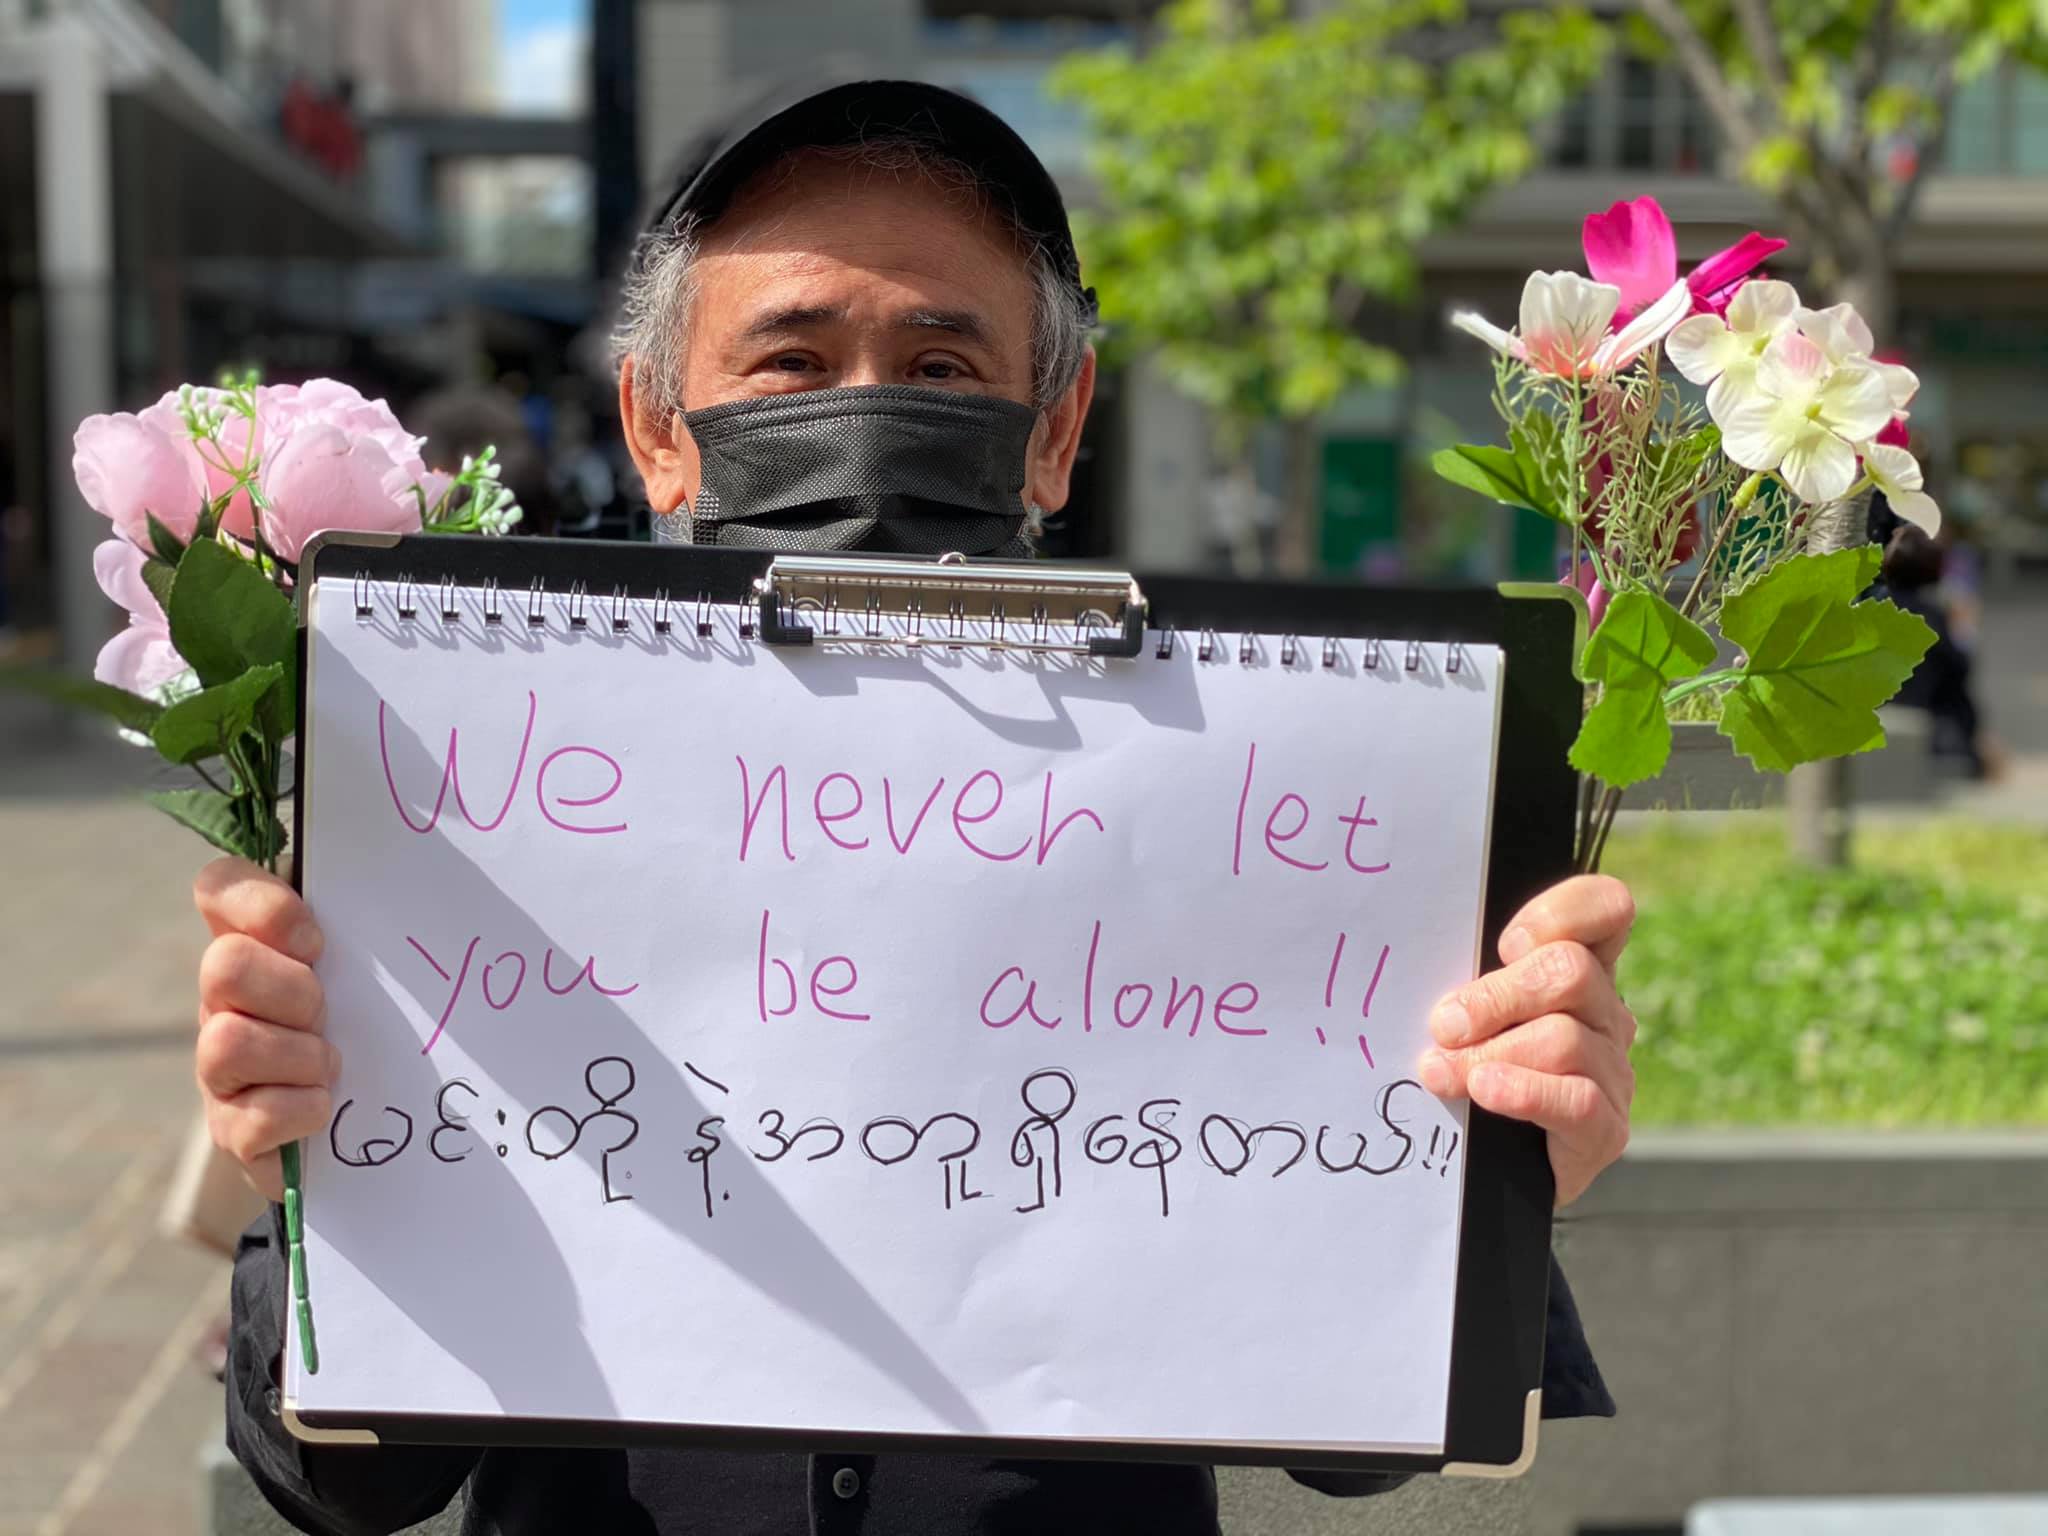 We never let
you be alone!!
မင်းတို့ နဲ့အတူရှိနေတယ်!!